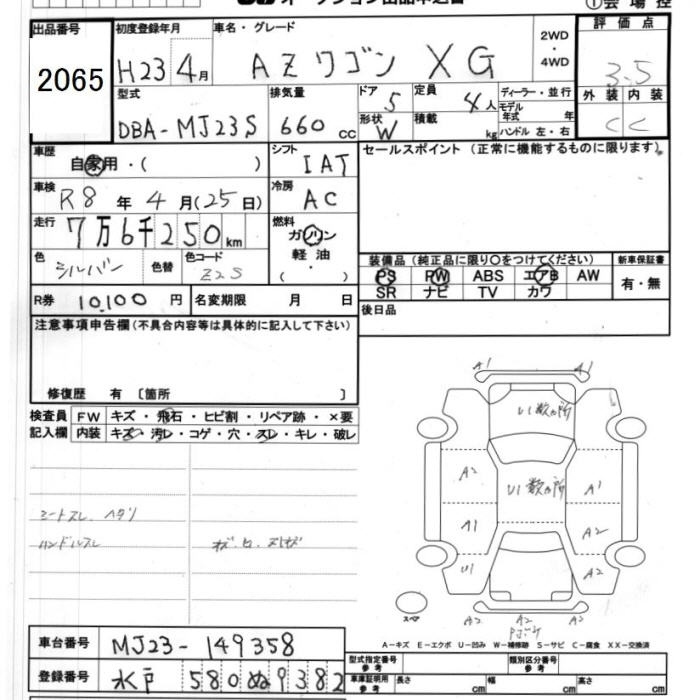 オークション出品申込書 ①会場控
出品番号 初度登録年月 車名・グレード 2WD・4WD 評価点
2065 H23 4月 AZワゴン XG 3.5
型式 排気量 ドア 定員 ディーラー・並行 外装 内装
DBA-MJ23S 660cc 5 4人 モデル年式 年 C C
形状 積載 ハンドル 左・右
W kg
車歴 シフト セールスポイント(正常に機能するものに限ります)。
自家用・( ) IAT
車検 冷房
R8年4月(25日) AC
走行 燃料
7万6千250km ガソリン・軽油・( )
色 シルバー 色替 色コード Z2S
装備品(純正品に限り○をつけてください) 新車保証書
PS PW ABS エアB AW 有・無
SR ナビ TV カワ
R券 10,100円 名変期限 月 日 後日品
注意事項申告欄(不具合内容等は具体的に記入して下さい)
修復歴 有〔箇所 〕
検査員 FW キズ・飛石・ヒビ割・リペア跡・×要
記入欄 内装 キズ・汚レ・コゲ・穴・スレ・キレ・破レ
シートスレ、ヘタリ
ハンドルスレ
A1 A1
U1 数ヵ所
A2 U1 数ヵ所 A1
A1 A2
U1 A2
スペア A2 A2 A2
A-キズ E-エクボ U-凹み W-補修跡 S-サビ C-腐食 XX-交換済
車台番号 MJ23-149358
登録番号 水戸 580 ぬ 9382
型式指定番号 参考 類別区分番号 参考
車庫証明用 参考 長さ cm 幅 cm 高さ cm